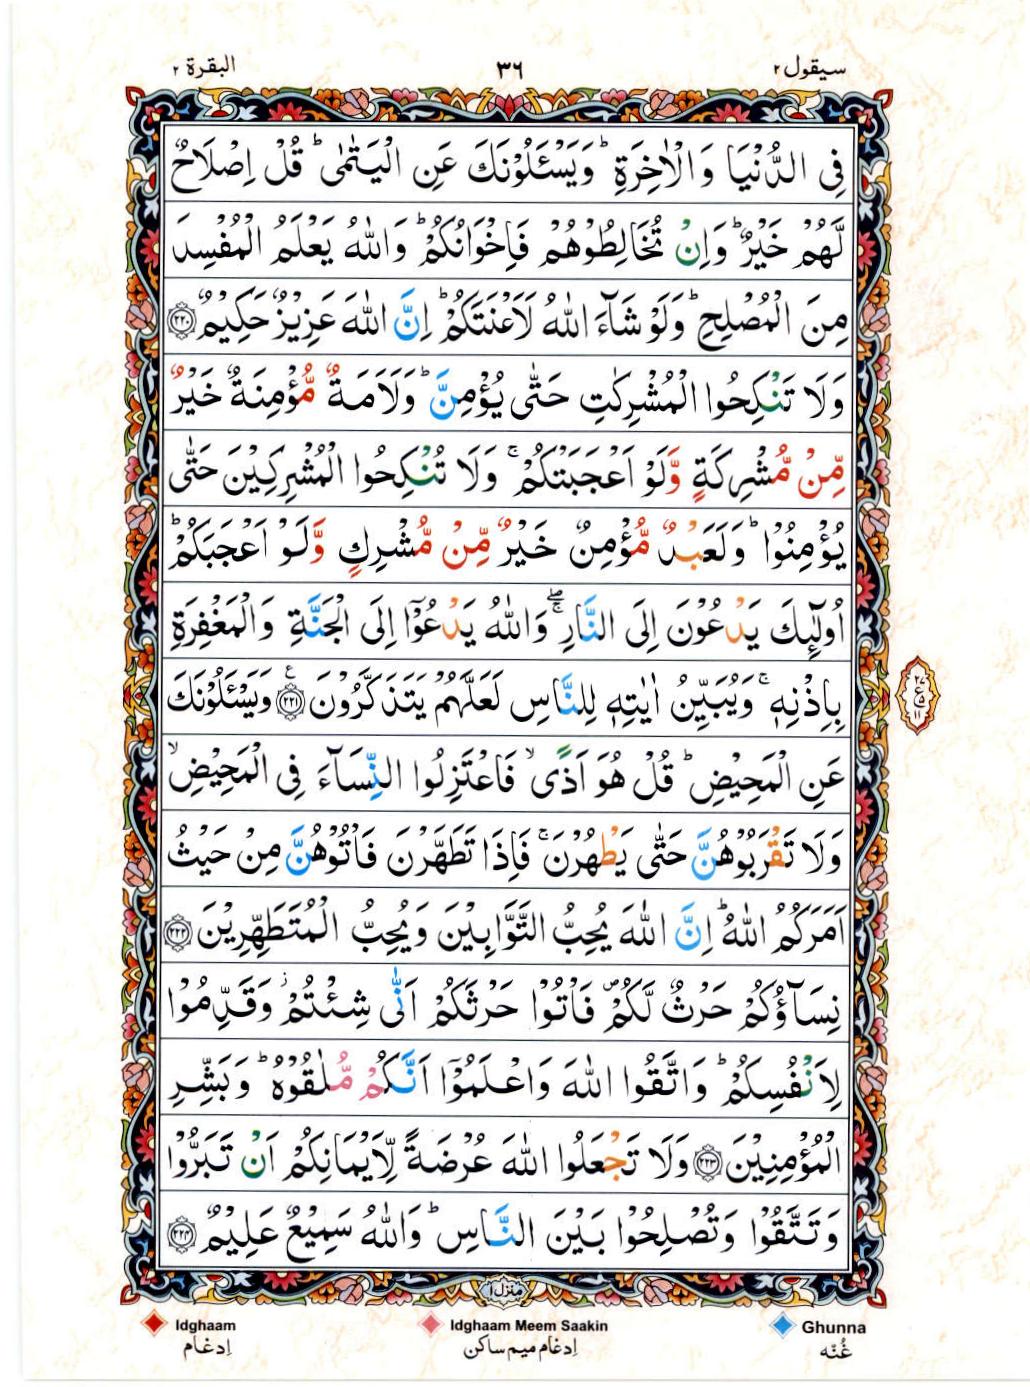 سيقول ٢ ٣٦ البقرة ٢
فِى الدُّنْيَا وَالْاٰخِرَةِ ؕ وَيَسْـَٔلُوْنَكَ عَنِ الْيَتٰمٰى ؕ قُلْ اِصْلَاحٌ
لَّهُمْ خَيْرٌ ؕ وَاِنْ تُخَالِطُوْهُمْ فَاِخْوَانُكُمْ ؕ وَاللّٰهُ يَعْلَمُ الْمُفْسِدَ
مِنَ الْمُصْلِحِ ؕ وَلَوْ شَآءَ اللّٰهُ لَاَعْنَتَكُمْ ؕ اِنَّ اللّٰهَ عَزِيْزٌ حَكِيْمٌ ﴿۲۲۰﴾
وَلَا تَنْكِحُوا الْمُشْرِكٰتِ حَتّٰى يُؤْمِنَّ ؕ وَلَاَمَةٌ مُّؤْمِنَةٌ خَيْرٌ
مِّنْ مُّشْرِكَةٍ وَّلَوْ اَعْجَبَتْكُمْ ۚ وَلَا تُنْكِحُوا الْمُشْرِكِيْنَ حَتّٰى
يُؤْمِنُوْا ؕ وَلَعَبْدٌ مُّؤْمِنٌ خَيْرٌ مِّنْ مُّشْرِكٍ وَّلَوْ اَعْجَبَكُمْ ؕ
اُولٰٓئِكَ يَدْعُوْنَ اِلَى النَّارِ ۖۚ وَاللّٰهُ يَدْعُوْٓا اِلَى الْجَنَّةِ وَالْمَغْفِرَةِ
بِاِذْنِهٖ ۚ وَيُبَيِّنُ اٰيٰتِهٖ لِلنَّاسِ لَعَلَّهُمْ يَتَذَكَّرُوْنَ ﴿۲۲۱﴾ ع وَيَسْـَٔلُوْنَكَ
عَنِ الْمَحِيْضِ ؕ قُلْ هُوَ اَذًى ۙ فَاعْتَزِلُوا النِّسَآءَ فِى الْمَحِيْضِ ۙ
وَلَا تَقْرَبُوْهُنَّ حَتّٰى يَطْهُرْنَ ۚ فَاِذَا تَطَهَّرْنَ فَاْتُوْهُنَّ مِنْ حَيْثُ
اَمَرَكُمُ اللّٰهُ ؕ اِنَّ اللّٰهَ يُحِبُّ التَّوَّابِيْنَ وَيُحِبُّ الْمُتَطَهِّرِيْنَ ﴿۲۲۲﴾
نِسَآؤُكُمْ حَرْثٌ لَّكُمْ ۪ فَاْتُوْا حَرْثَكُمْ اَنّٰى شِئْتُمْ ؗ وَقَدِّمُوْا
لِاَنْفُسِكُمْ ؕ وَاتَّقُوا اللّٰهَ وَاعْلَمُوْٓا اَنَّكُمْ مُّلٰقُوْهُ ؕ وَبَشِّرِ
الْمُؤْمِنِيْنَ ﴿۲۲۳﴾ وَلَا تَجْعَلُوا اللّٰهَ عُرْضَةً لِّاَيْمَانِكُمْ اَنْ تَبَرُّوْا
وَتَتَّقُوْا وَتُصْلِحُوْا بَيْنَ النَّاسِ ؕ وَاللّٰهُ سَمِيْعٌ عَلِيْمٌ ﴿۲۲۴﴾
منزل ١
Idghaam Idghaam Meem Saakin Ghunna
اِدغام اِدغام میم ساکن غُنّه